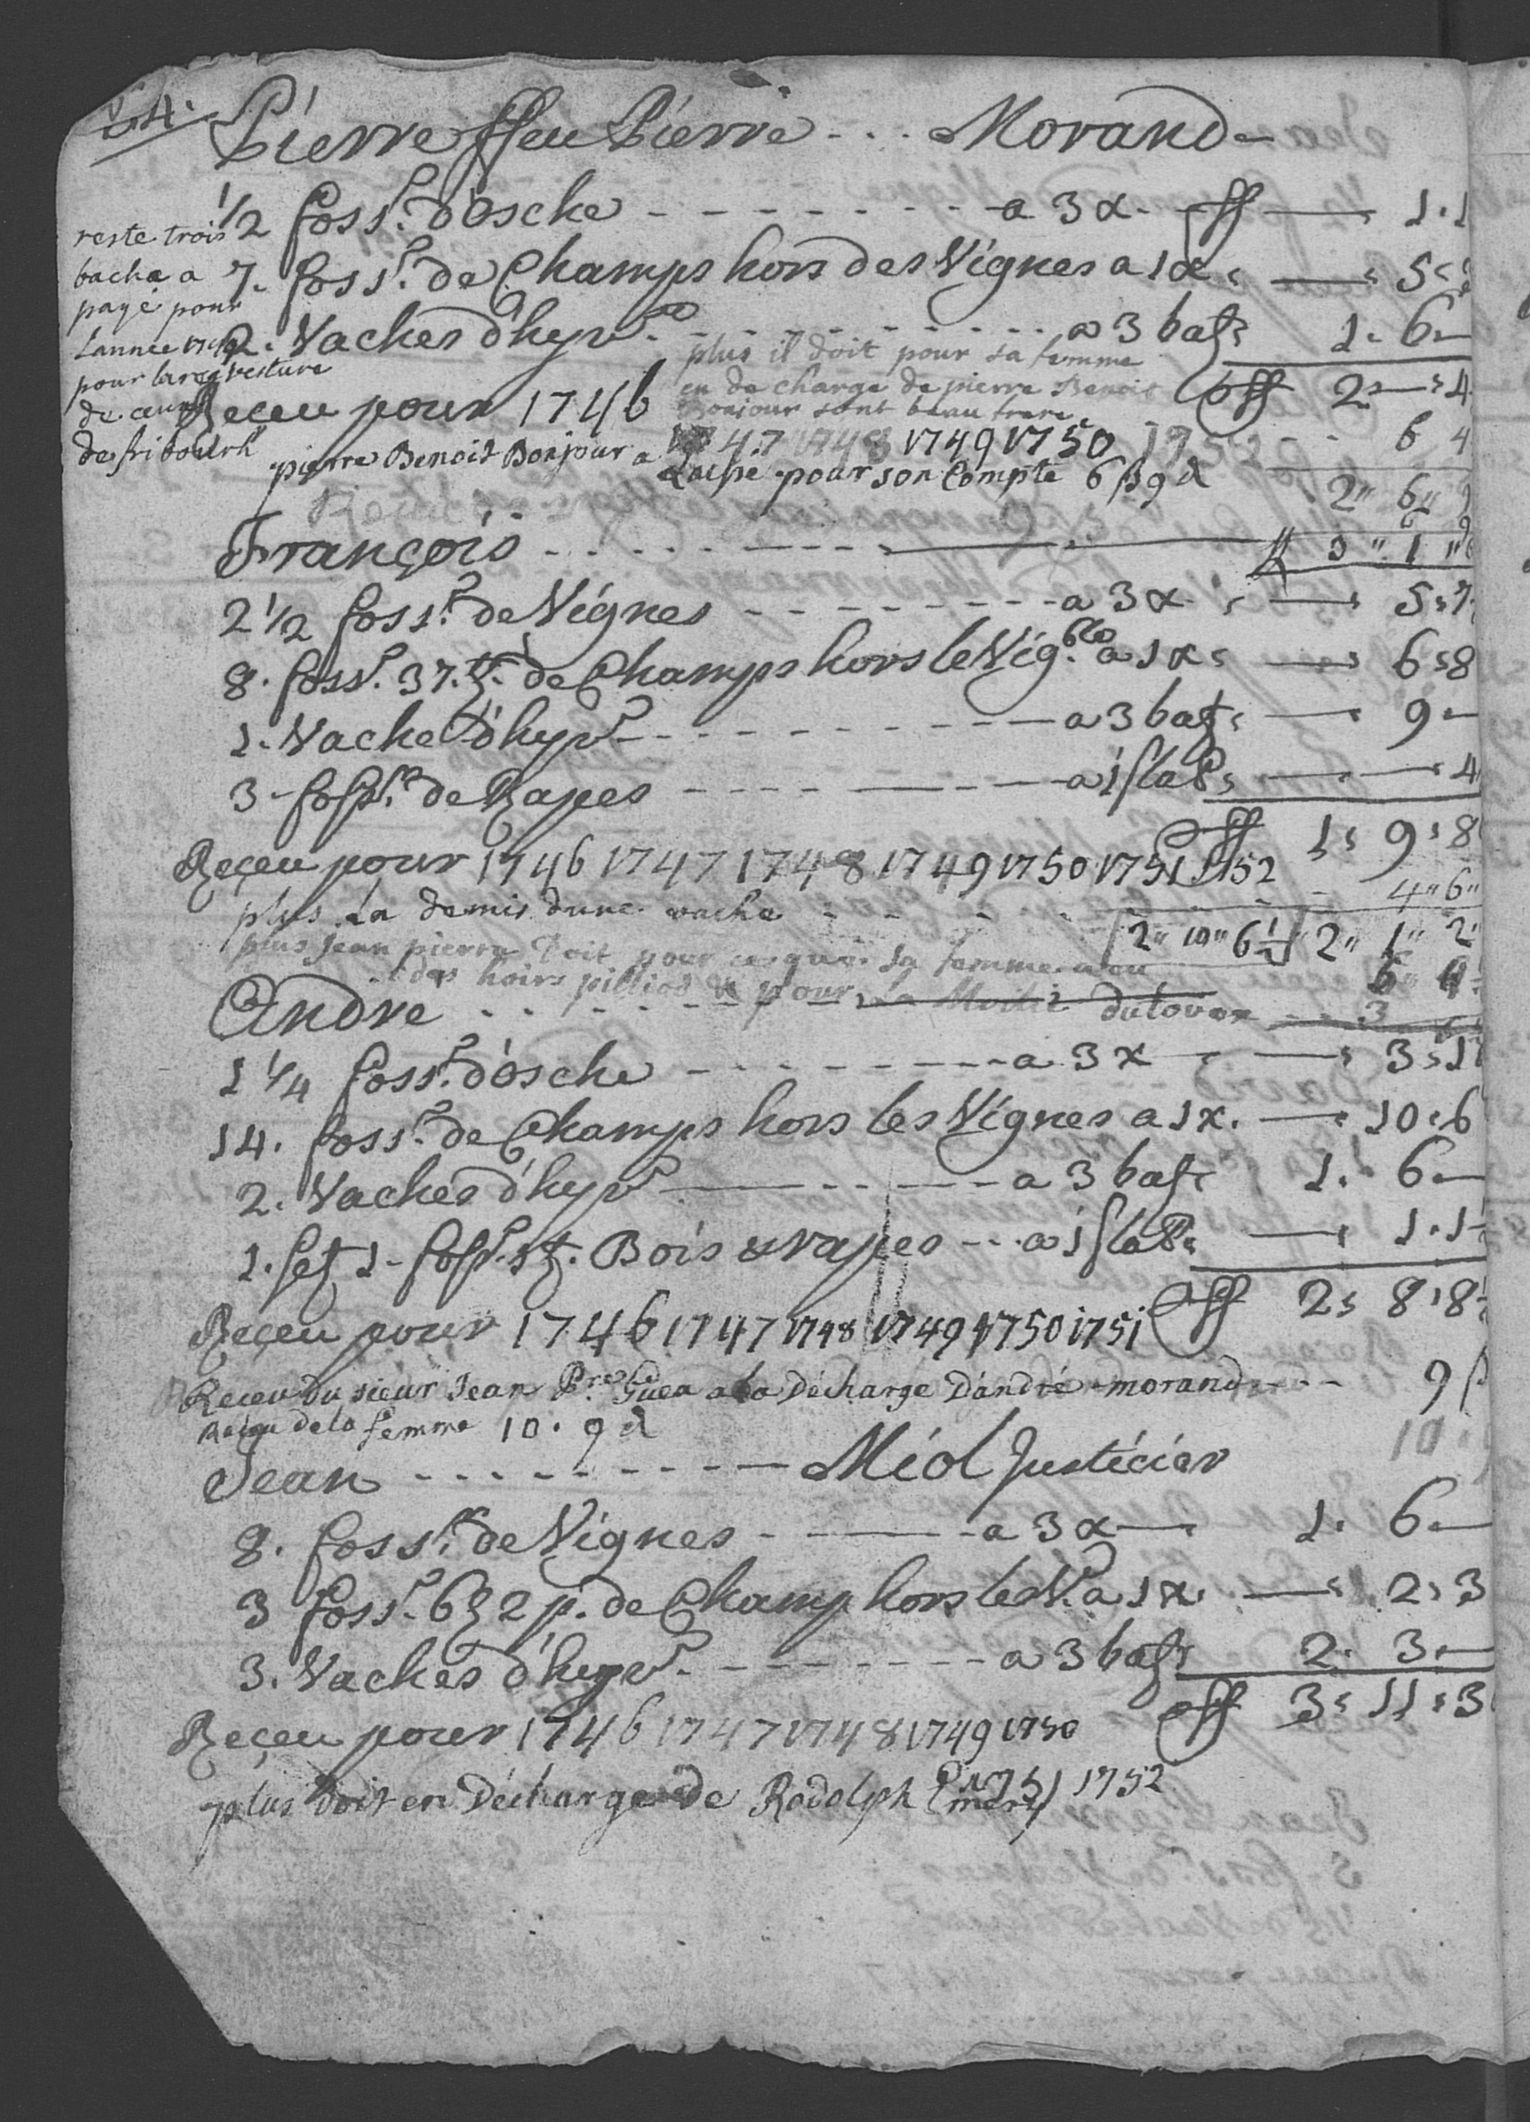 24.
Pierre ffeu Pierre - . . . Morand -
1/2 foss.r d'Osche - - - - - - - a 3 x. ff — 1. 1
7. foss.r de Champs hors des Vignes a 1 x — 5.
2. Vaches d'hyv.r - - - - - a 3 batz 1. 6. —
reste trois
bache a
payé pour
Lannee
pour la
de
de fribourk
plus il doit pour sa femme
en de charge de pierre Benoit
Bonjour sont beau frere
ff 2. — . 4
Reçeu pour 1746 1747 1748 1749 1750 1752 - - 6 4
pierre Benoit Bonjour a pour son Compte 6 ß 9 d
2" 6" 9
François - - - - - - - — ff 3" 1"
2 1/2 foss.r de Vignes - - - - - - a 3 x — 5. 7
8. foss.r 37. t. de Champs hors le Vig.ble a 1 x — 6. 8
1. Vache d'hyv.r - - - - - - a 3 batz — 9. —
3 - foss.r de Rapes - - - - - — a 1 — — 4
ff 1. 9. 8
Reçeu pour 1746 1747 1748 1749 1750 1751 1752
plus La demis dune vache - - - - 4" 6"
2" 10" 6 1/2 2" 1" 2
plus Jean pierre Doit pour sa femme
des hoirs pilliod & pour La Moitié du 3
Andre - - - - - -
1 1/4 foss.r d'osche - - - - - - a 3 x — 3. 1
14. foss.r de Champs hors les Vignes a 1 x. — 10. 6
2. Vaches d'hyv.r — - - - - a 3 batz 1. 6. —
1. set 1 - foss.r Bois & rapes - - . a 1 — 1. 1
ff 2. 8. 8
Reçeu pour 1746 1747 1748 1749 1750 1751
Receu du sieur Jean P.re Guea a la Decharge D'andré morand - - - 9 ß
Reçu de la femme 10. 9 d
10.
Jean - - - - - - - - — Miol Justicier
8. foss.r de Vignes - - — - a 3 x — 1. 6. —
3 foss.r 6 t 2 p. de Champ hors le V. a 1 x. — 2. 3
3. Vaches d'hyv.r - - - - - - a 3 batz 2. 3. —
ff 3. 11. 3
Reçeu pour 1746 1747 1748 1749 1750
1751 1752
plus Doit en Decharge de Rodolph